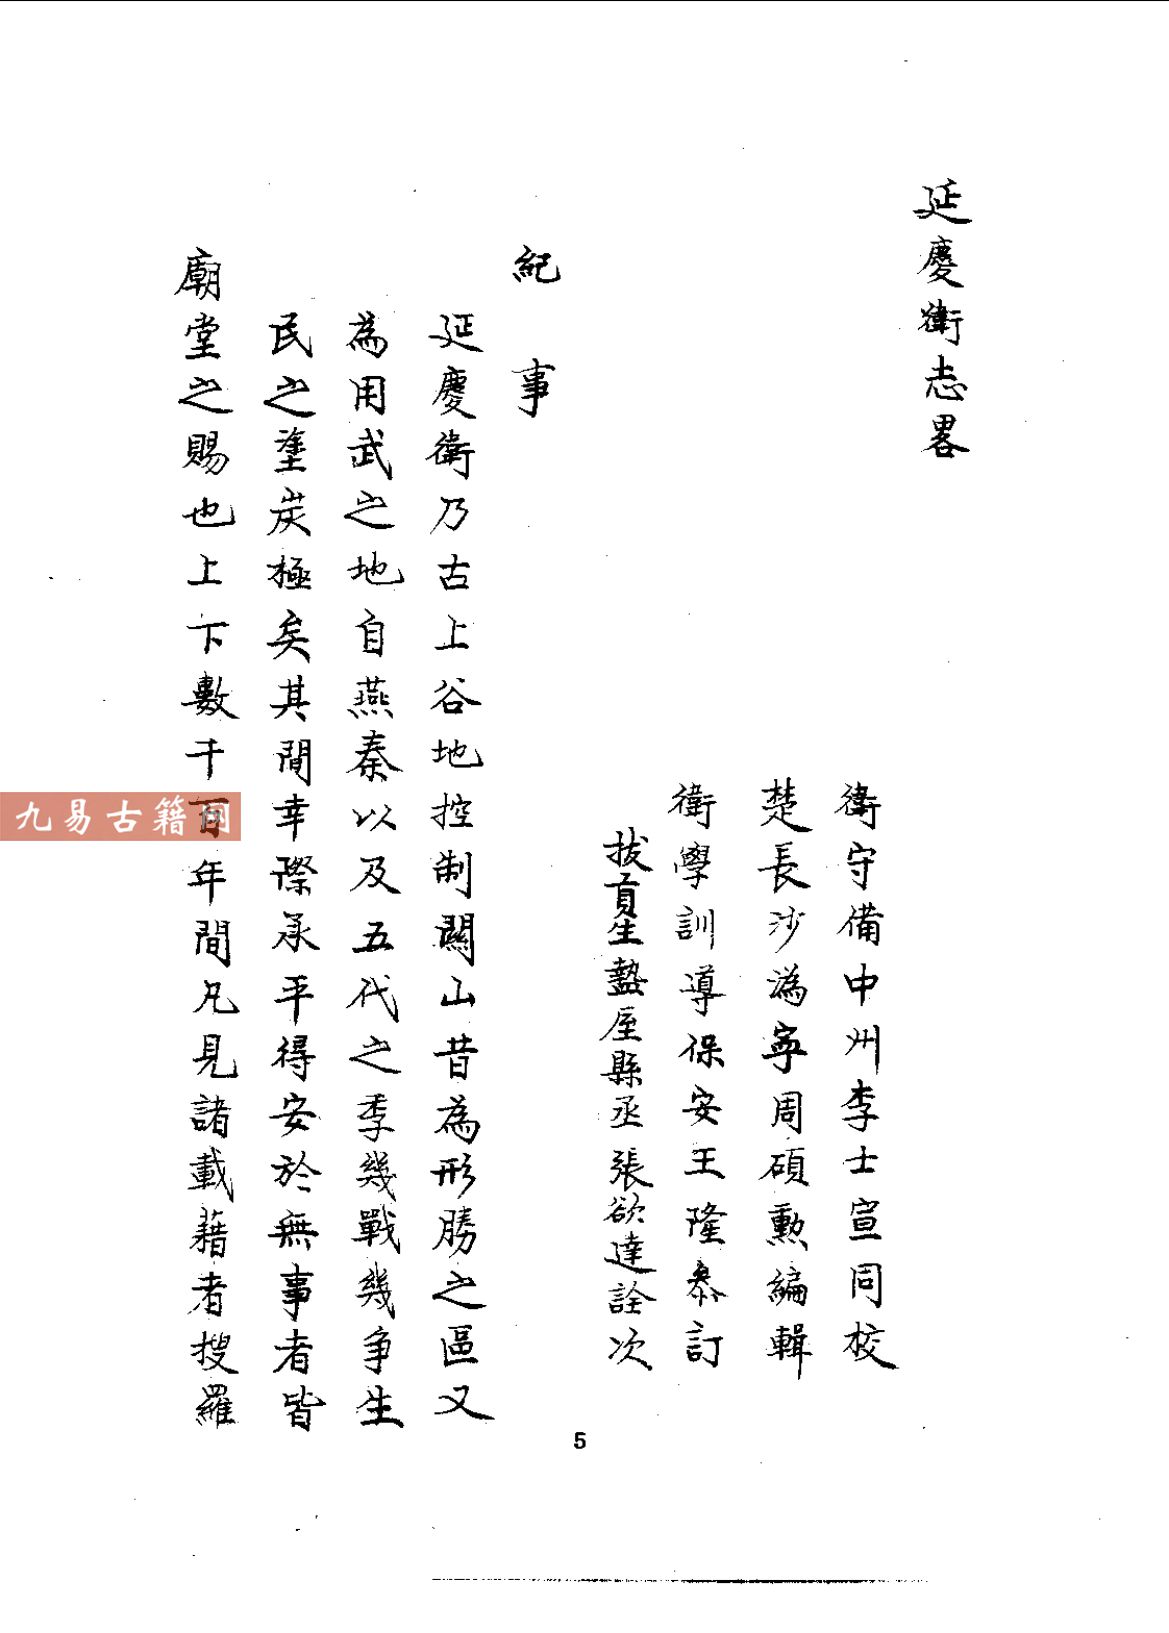 延慶衛志畧
衛守備中州李士宣同校
楚長沙溈寧周碩勲編輯
衛學訓導保安王隆叅訂
拔貢生盩厔縣丞張欲達詮次
紀事
延慶衛乃古上谷地控制關山昔為形勝之區又
為用武之地自燕秦以及五代之季幾戰幾争生
民之塗炭極矣其間幸際承平得安於無事者皆
廟堂之賜也上下數千百年間凡見諸載藉者搜羅
5
九易古籍网